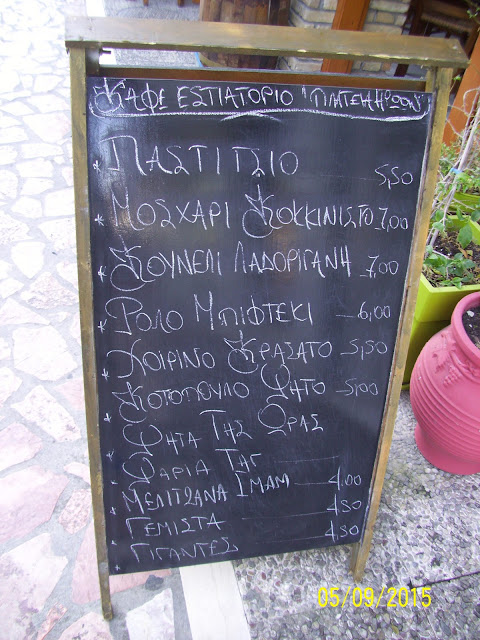 ΚΑΦΕ ΕΣΤΙΑΤΟΡΙΟ "ΠΛΑΤΕΙΑ ΗΡΩΩΝ"
* ΠΑΣΤΙΤΣΙΟ 5,50
* ΜΟΣΧΑΡΙ ΚΟΚΚΙΝΙΣΤΟ 7,00
* ΚΟΥΝΕΛΙ ΛΑΔΟΡΙΓΑΝΗ 7,00
* ΡΟΛΟ ΜΠΙΦΤΕΚΙ 6,00
* ΧΟΙΡΙΝΟ ΚΡΑΣΑΤΟ 5,50
* ΚΟΤΟΠΟΥΛΟ ΨΗΤΟ 5,00
* ΨΗΤΑ ΤΗΣ ΩΡΑΣ
ΨΑΡΙΑ
ΜΕΛΙΤΖΑΝΑ ΙΜΑΜ 4,00
ΓΕΜΙΣΤΑ 4,50
ΓΙΓΑΝΤΕΣ 4,50
05/09/2015